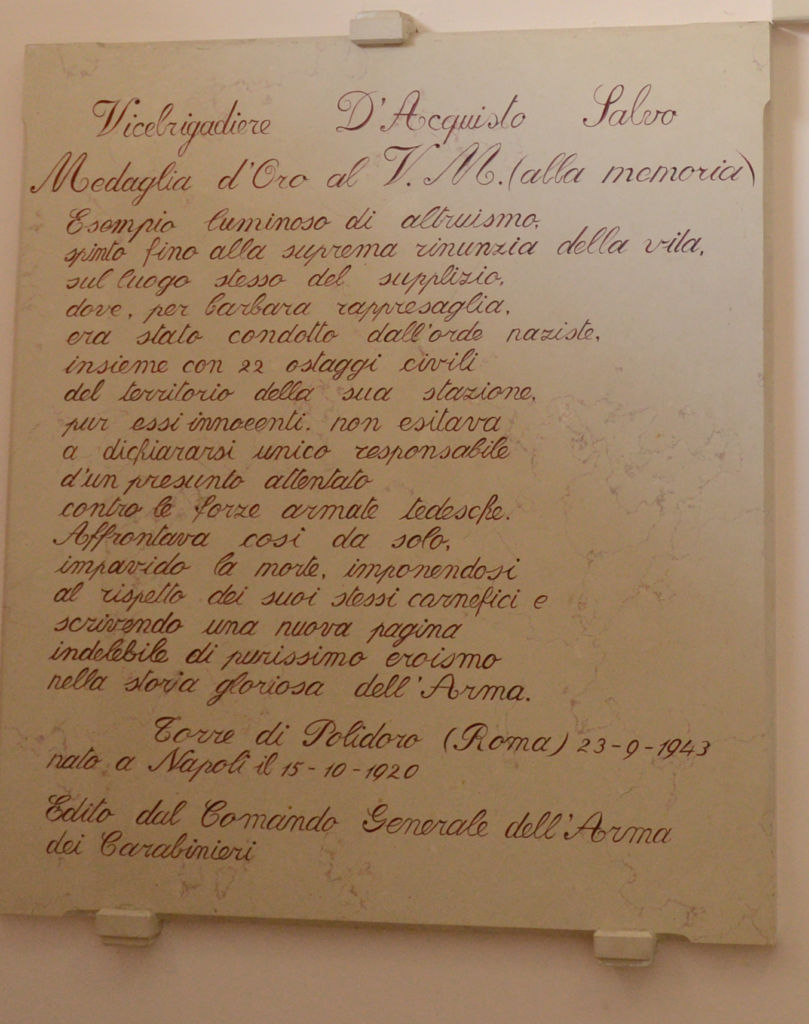 Vicebrigadiere D'Acquisto Salvo
Medaglia d'Oro al V. M. (alla memoria)
Esempio luminoso di altruismo,
spinto fino alla suprema rinunzia della vita,
sul luogo stesso del supplizio,
dove, per barbara rappresaglia,
era stato condotto dall'orde naziste,
insieme con 22 ostaggi civili
del territorio della sua stazione,
pur essi innocenti. non esitava
a dichiararsi unico responsabile
d'un presunto attentato
contro le forze armate tedesche.
Affrontava cosi da solo,
impavido la morte, imponendosi
al rispetto dei suoi stessi carnefici e
scrivendo una nuova pagina
indelebile di purissimo eroismo
nella storia gloriosa dell'Arma.
Torre di Polidoro (Roma) 23-9-1943
nato a Napoli il 15-10-1920
Edito dal Comando Generale dell'Arma
dei Carabinieri